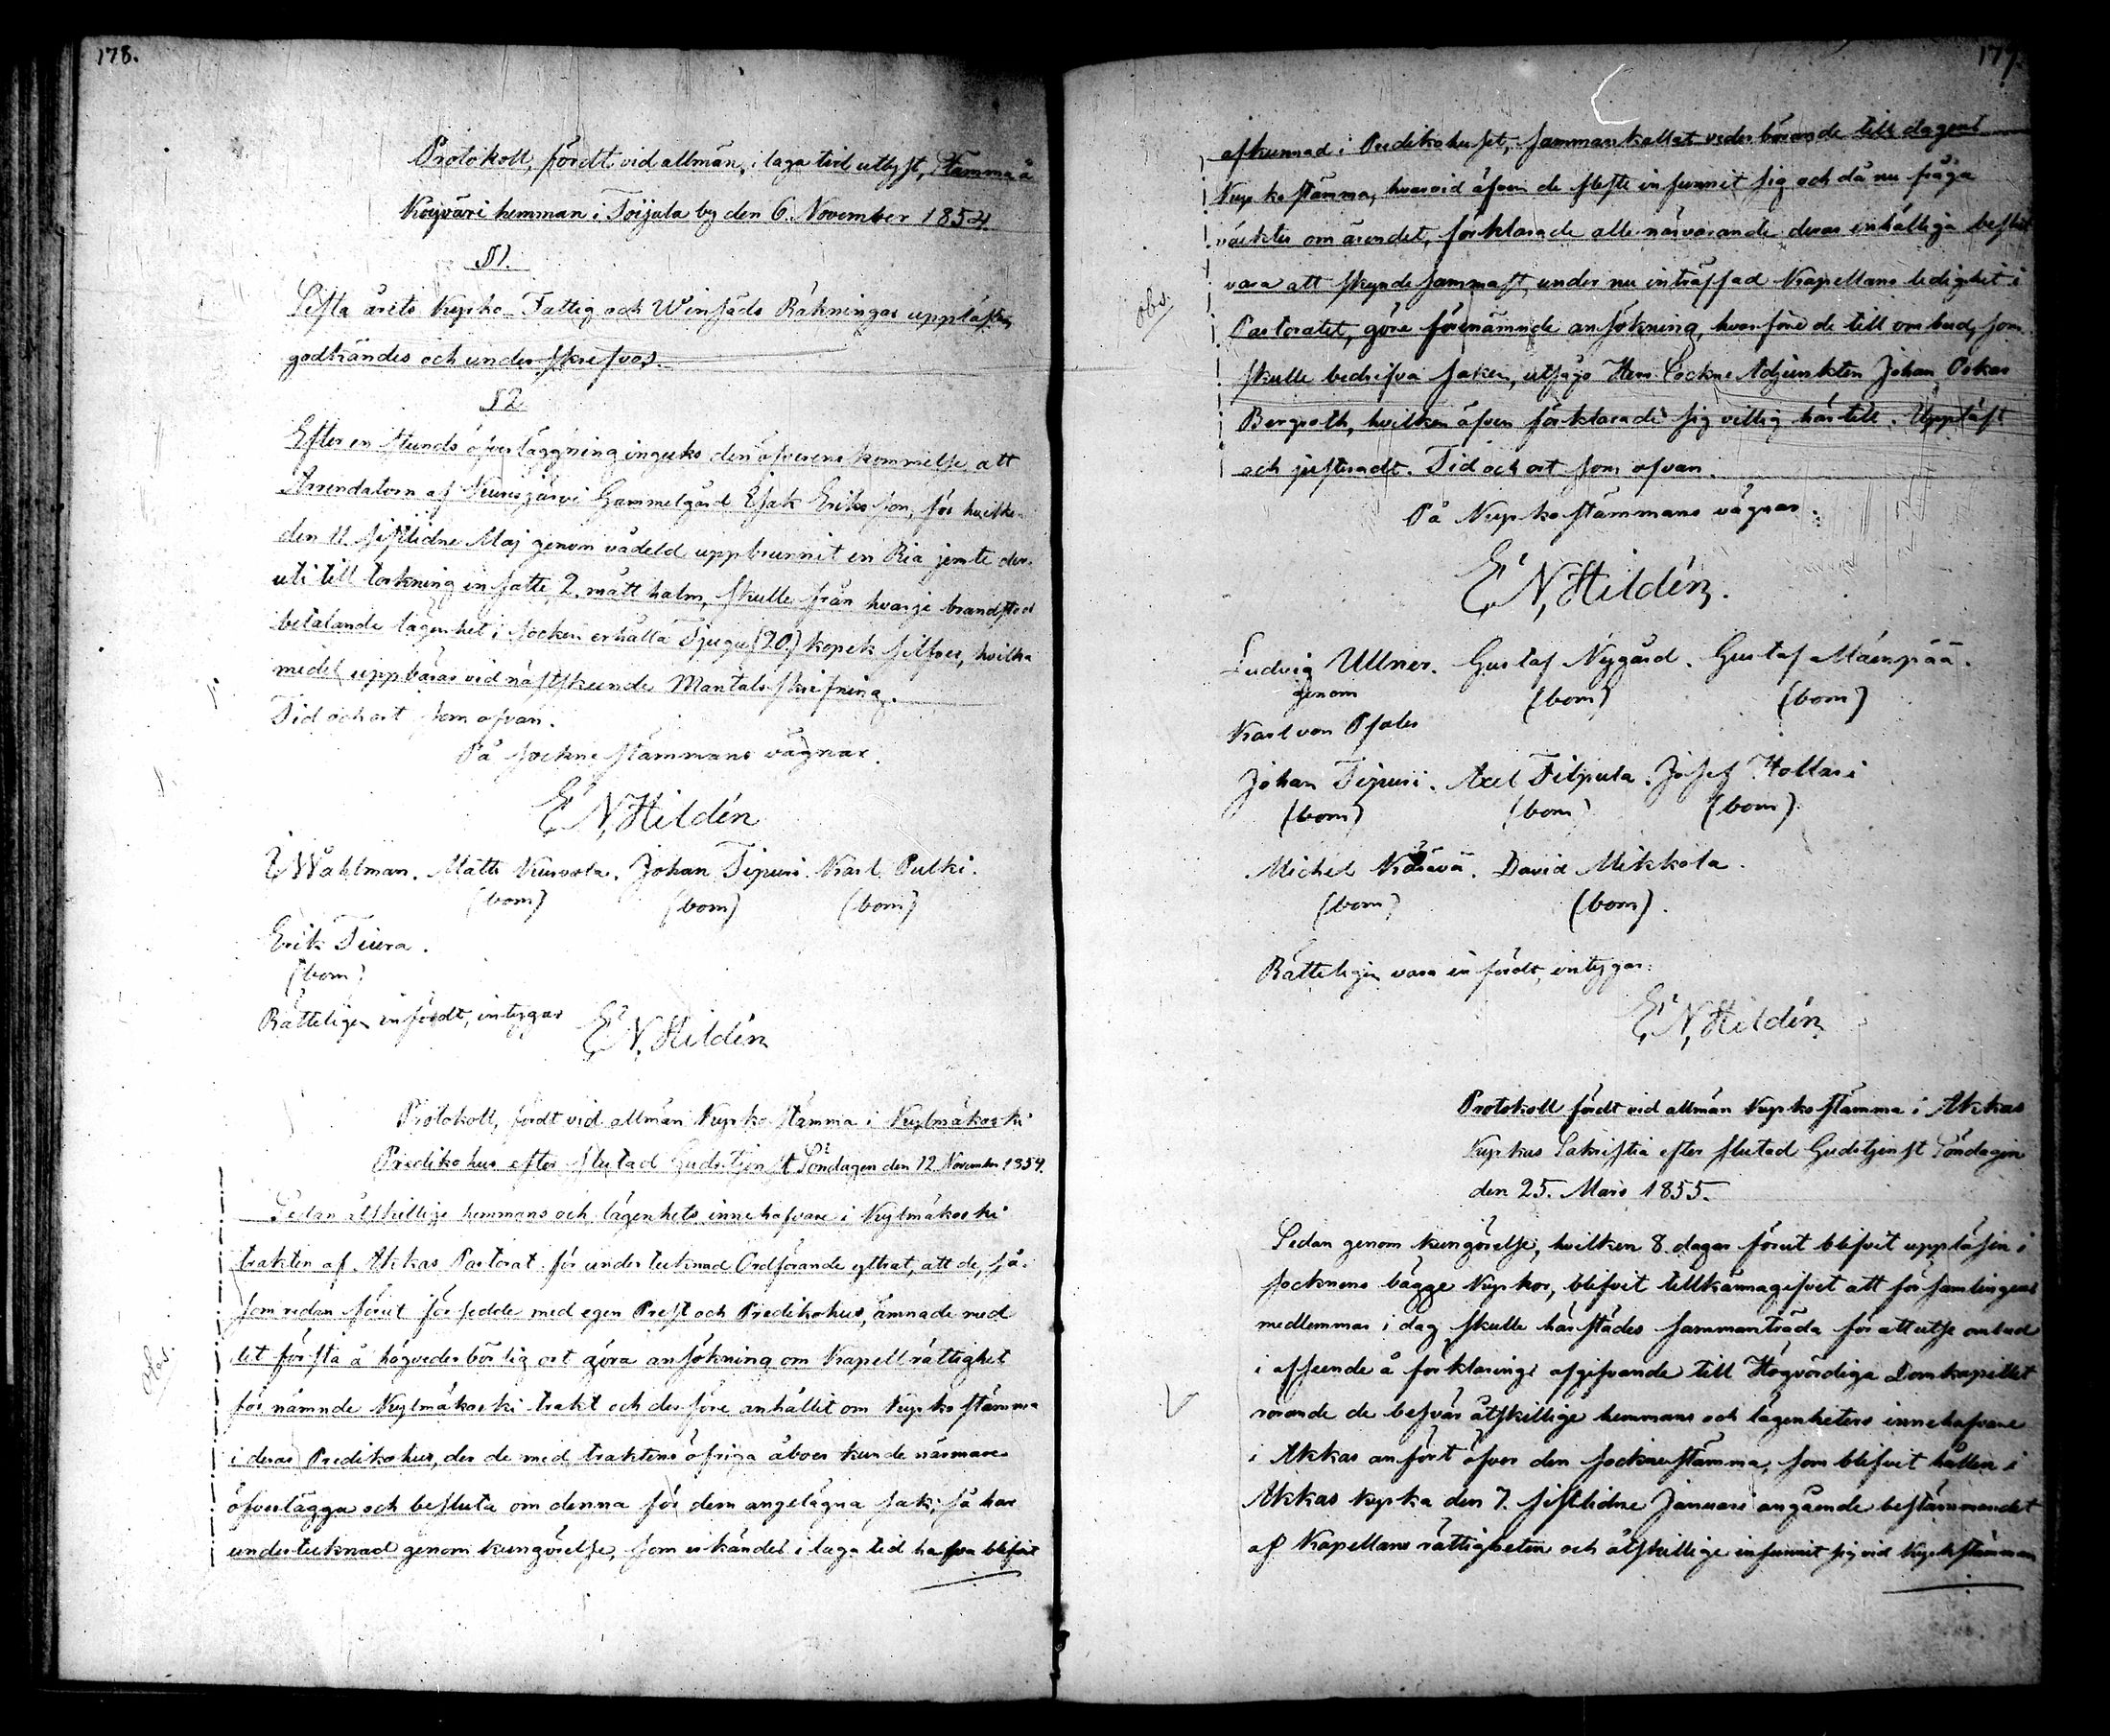 178.
Protokoll, fördt vid allmän, i laga tid utlyst, Stämma å
Koyväri hemman i Toijala by den 6. November 1854.
§1.
Sista årets Kyrko- Fattig och Winsäds Räkningar upplästes
godkändes och underskrefvos.
§2.
Efter en stunds öfverläggning ingicks den öfverenskommelse, att
Arrendatorn af Kurisjärvi Gammelgård Isak Eriksson, för hvilken
den 11 sistlidne Maj genom vådeld uppbrunnit en Ria jemte der-
uti till torkning insatte 2. mått halm, skulle från hvarje brandstod
betalande lägenhet i socken erhålla Tjugu (20) kopek silfver, hvilka
medel uppbäras vid nästskeende Mantalsskrifning.
Tid och ort som ofvan.
På sockne stämmans vägnar.
E. N. Hildén
Wahlman. Matts Kurvola. Johan Tipuri. Karl Pulki.
(bom) (bom) (bom)
Erik Tiura.
(bom)
Rätteligen infördt, intygar E. N. Hildén
Protokoll, fördt vid allmän Kyrko stämma i Kylmäkoski
Prediko hus efter slutad Gudstjenst Söndagen den 12 November 1854.
Sedan åtskillige hemmans och lägenhets innehafvare i Kylmäkoski
trakten af Akkas Pastorat för undertecknad Ordförande yttrat, att de, så-
som redan förut försedde med egen Prest och Predikohus, ämnade med
det första å högvederbörlig ort göra ansökning om Kapellrättighet
för nämnde Kylmäkoski trakt och derföre anhållit om Kyrko stämma
i deras Predikohus, der de med traktens öfriga åboer kunde närmare
öfverlägga och besluta om denna för dem angelägna sak; så har
undertecknad genom kungörelse, som erkändes i laga tid hafva blifvit
obs.
179.
afkunnad i Predikohuset, sammankallat vederbörande till dagens
Kyrko stämma, hvarvid äfven de fleste infunnit sig och då nu fråga
väcktes om ärendet, förklarade alle närvarande deras enhälliga beslut
vara att skyndesammast, under nu inträffad Kapellans ledighet i
Pastoratet, göra förenämnde ansökning, hvarföre de till ombud, som
skulle bedrifva saken, utsågo Herr Sockne Adjunkten Johan Oskar
Bergroth, hvilken äfven förklarade sig villig härtill. Uppläst
och justeradt. Tid och ort som ofvan.
obs.
På Kyrko stämmans vägnar.
E. N. Hildén.
Ludvig Ullner. Gustaf Nygård. Gustaf Mäenpää.
genom (bom) (bom)
Karl von Pfaler
Johan Tipuri. Axel Tilpula. Josef Hollari
(bom) (bom) (bom)
Michel Kärävä. David Mikkola.
(bom) (bom).
Rätteligen vara infördt, intygar:
E. N. Hildén
Protokoll fördt vid allmän Kyrko stämma i Akkas
Kyrkas Sakristia efter slutad Gudstjenst Söndagen
den 25. Mars 1855.
Sedan genom kungörelse, hvilken 8. dagar förut blifvit uppläsen i
socknens bägge Kyrkor, blifvit tillkännagifvet att församlingens
medlemmar i dag skulle härstädes sammanträda för att utse ombud
i afseende å förklarings afgifvande till Högvördiga Domkapitlet
rörande de besvär åtskillige hemmans och lägenheters innehafvare
i Akkas anfört öfver den sockne stämma, som blifvit hållen i
Akkas kyrka den 7. sistlidne Januari angående bestämmandet
af Kapellans rättigheten och åtskillige infunnit sig vid Kyrkostämman